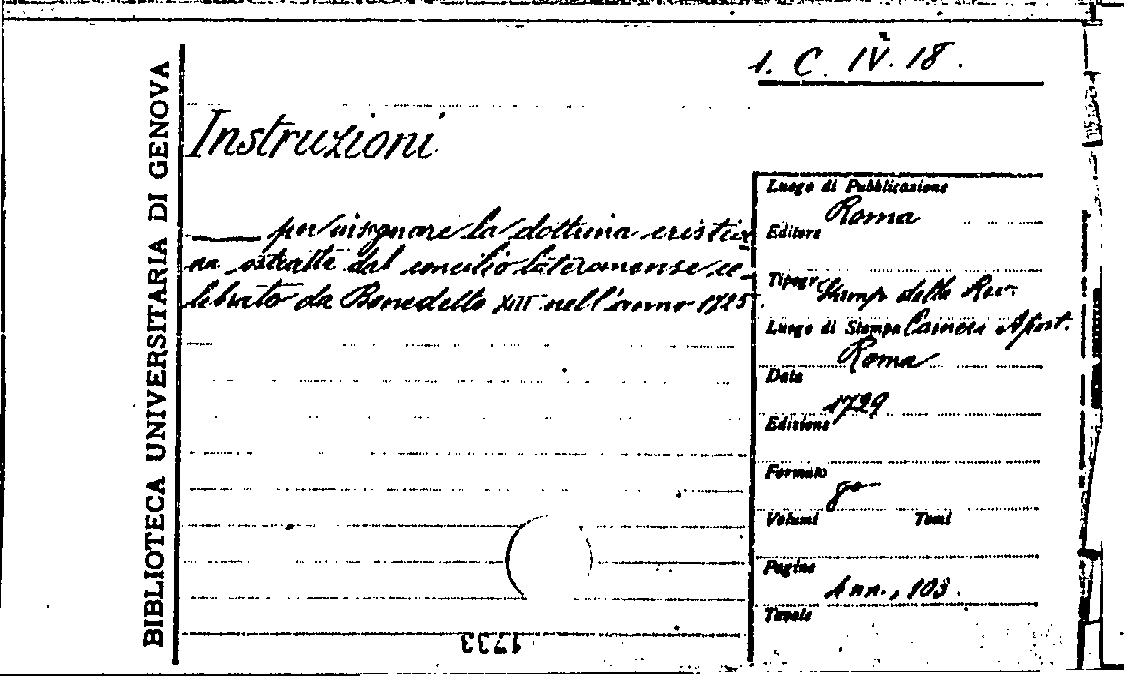 1. C. IV. 18.
BIBLIOTECA UNIVERSITARIA DI GENOVA
Instruzioni
per insegnare la dottrina cristia
na estratte dal concilio lateranense ce-
lebrato da Benedetto XIII nell'anno 1725.
Luogo di Pubblicazione
Roma
Editore
Tipogr. Stamp. della Rev.
Luogo di Stampa Camera Apost.
Roma
Data
1729
Edizione
Formato
8°
Volumi Tomi
Pagine
4 nn., 103.
Tavole
1733